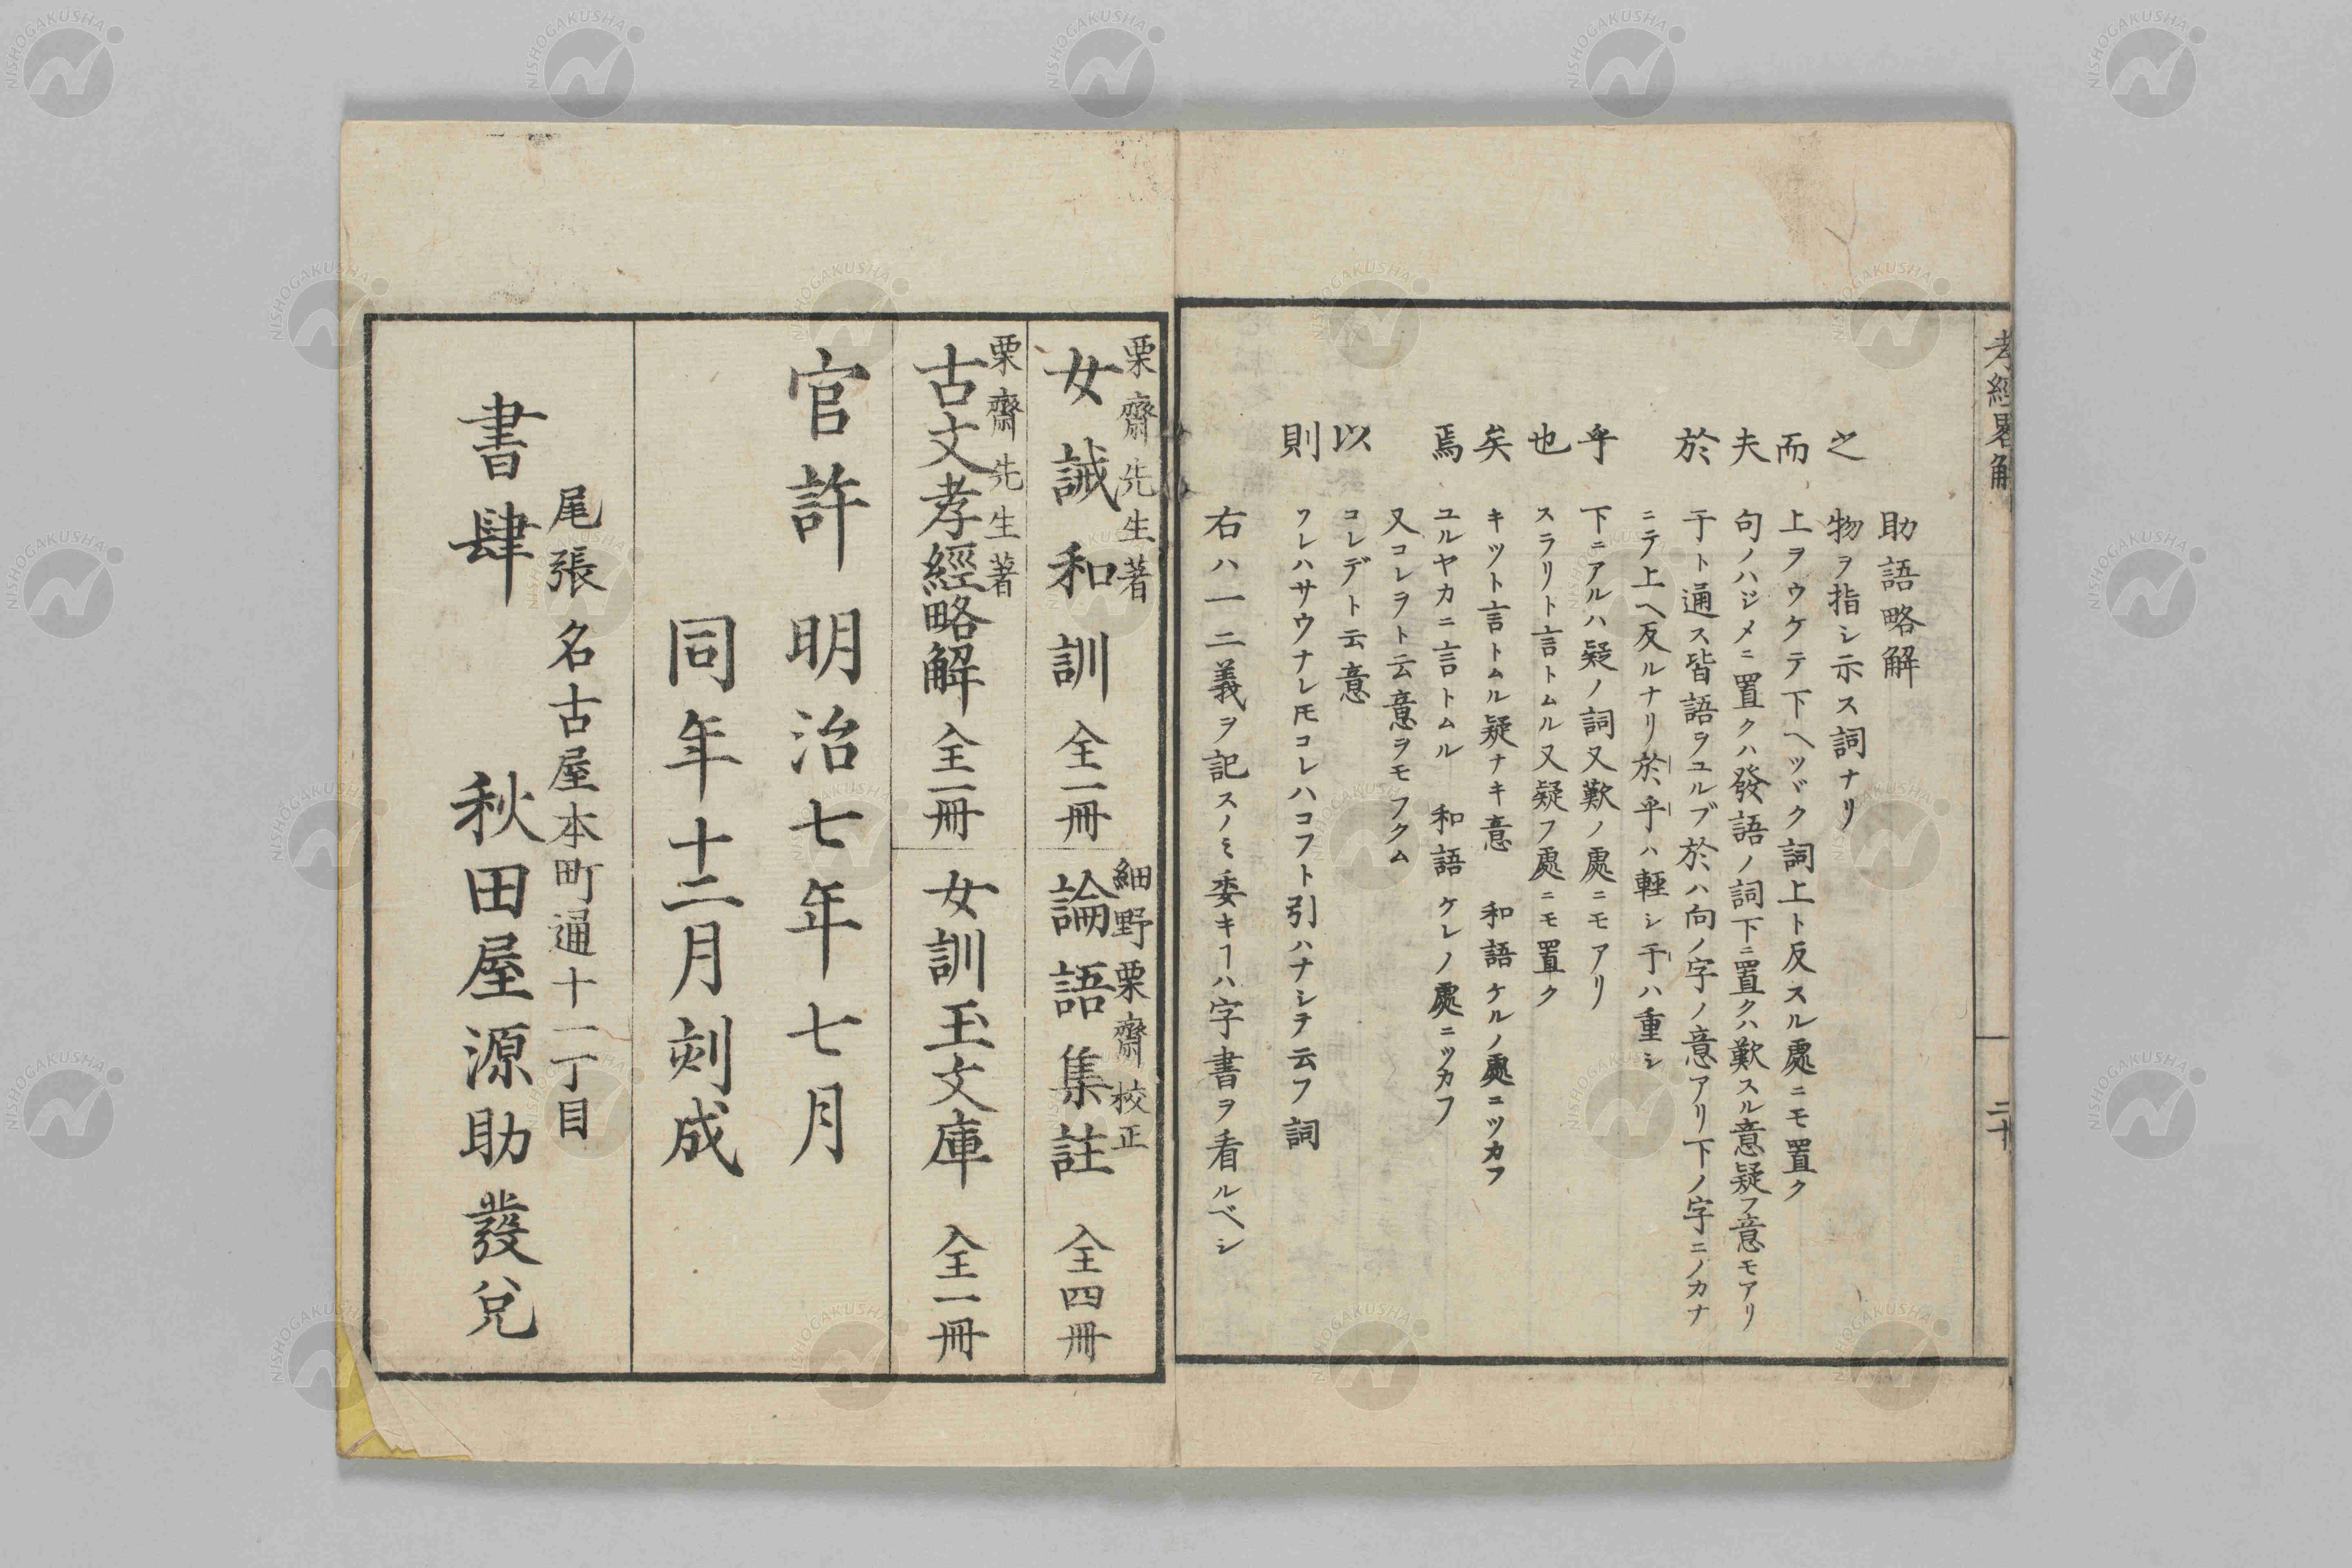 孝經畧解
二十
助語略解
之 物ヲ指シ示ス詞ナリ
而 上ヲウケテ下ヘツヾク詞上ト反スル處ニモ置ク
夫 句ノハジメニ置クハ發語ノ詞下ニ置クハ歎スル意疑フ意モアリ
於 于ト通ス皆語ヲユルブ於ハ向ノ字ノ意アリ下ノ字ニノカナ
ニテ上ヘ反ルナリ於、乎ハ輕シ于ハ重シ
乎 下ニアルハ疑ノ詞又歎ノ處ニモアリ
也 スラリト言トムル又疑フ處ニモ置ク
矣 キツト言トムル疑ナキ意 和語ケルノ處ニツカフ
焉 ユルヤカニ言トムル 和語ケレノ處ニツカフ
又コレヲト云意ヲモフクム
以 コレデト云意
則 フレハサウナレ𪜈コレハコフト引ハナシテ云フ詞
右ハ一二義ヲ記スノミ委キヿハ字書ヲ看ルベシ
栗齋先生著
女誡和訓 全一冊
細野栗齋校正
論語集註 全四冊
栗齋先生著
古文孝經略解 全一冊
女訓玉文庫 全一冊
官許 明治七年七月
同年十二月刻成
尾張名古屋本町通十一丁目
書肆 秋田屋源助發兌
NISHOGAKUSHA